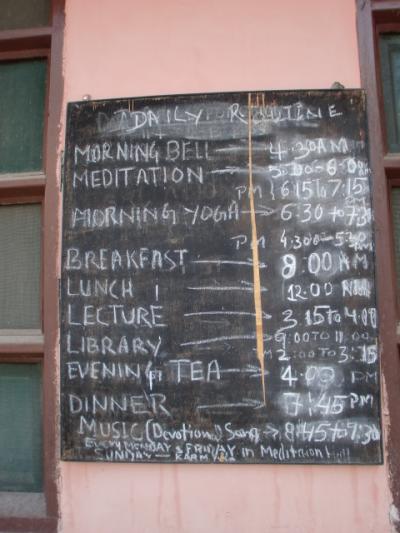 DAILY ROUTINE
MORNING BELL → 4.30 AM
MEDITATION → 5:00-6:00
PM 6.15 to 7.15
MORNING YOGA → 6.30 to 7.30
PM 4.300-5.30 PM
BREAKFAST 8:00 AM
LUNCH → 12.00
LECTURE → 3.15 to 4:00
LIBRARY → 9:00 TO 11:00
2:00 TO 3:15
EVENING TEA → 4.00 PM
DINNER → 7:45 PM
MUSIC (Devotion) Song → 8:45 to 9:30
EVERY MONDAY & FRIDAY in Meditaion Hall
SUNDAY — KARM